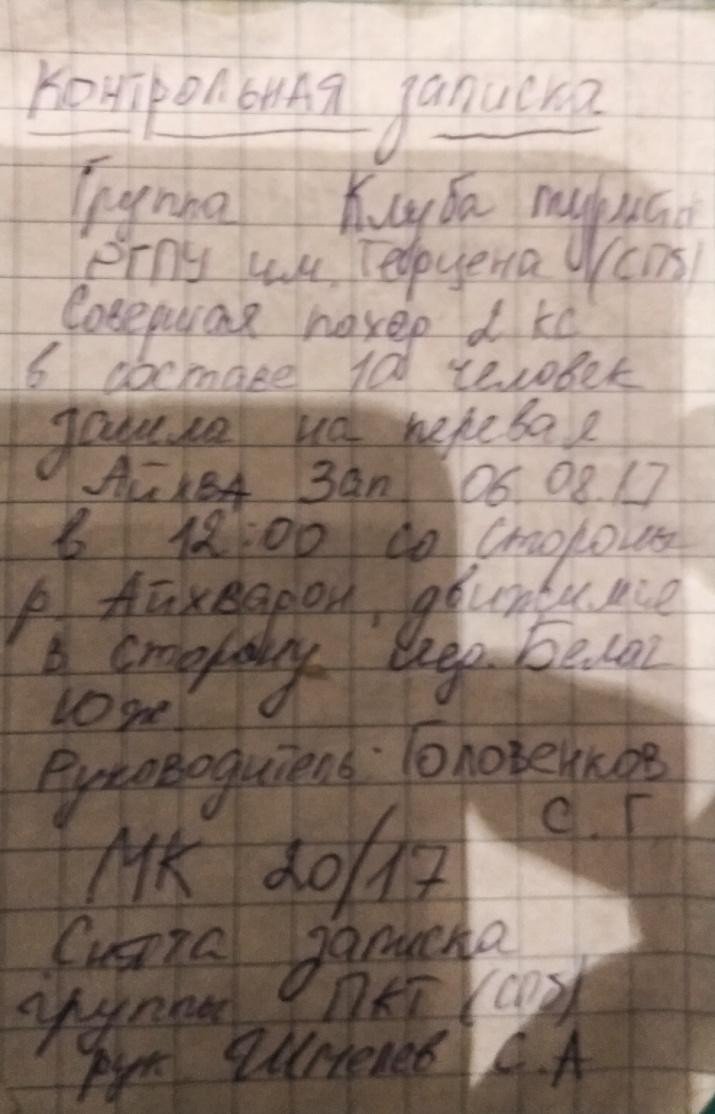 Контрольная записка
Группа Клуба туристов
РГПУ им. Герцена (СПб)
Совершая поход 2 кс
в составе 10 человек
зашла на перевал
Айхва Зап. 06.08.17
в 12:00 со стороны
р. Айхварон, движимся
в сторону лед. Белаг
Юж.
Руководитель: Головенков
С. Г
МК 20/17
Снята записка
группы ПКТ (СПб)
рук Шмелев С.А